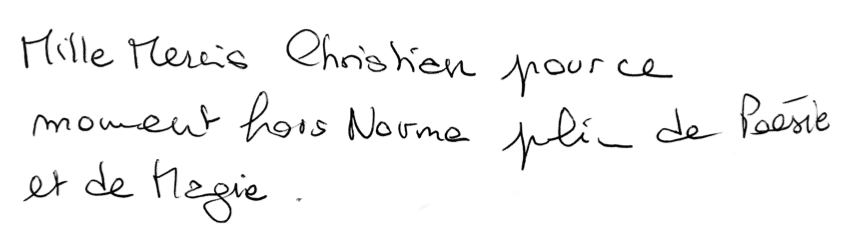 Mille Mercis Christian pour ce
moment hors Norme plein de Poésie
et de Magie.